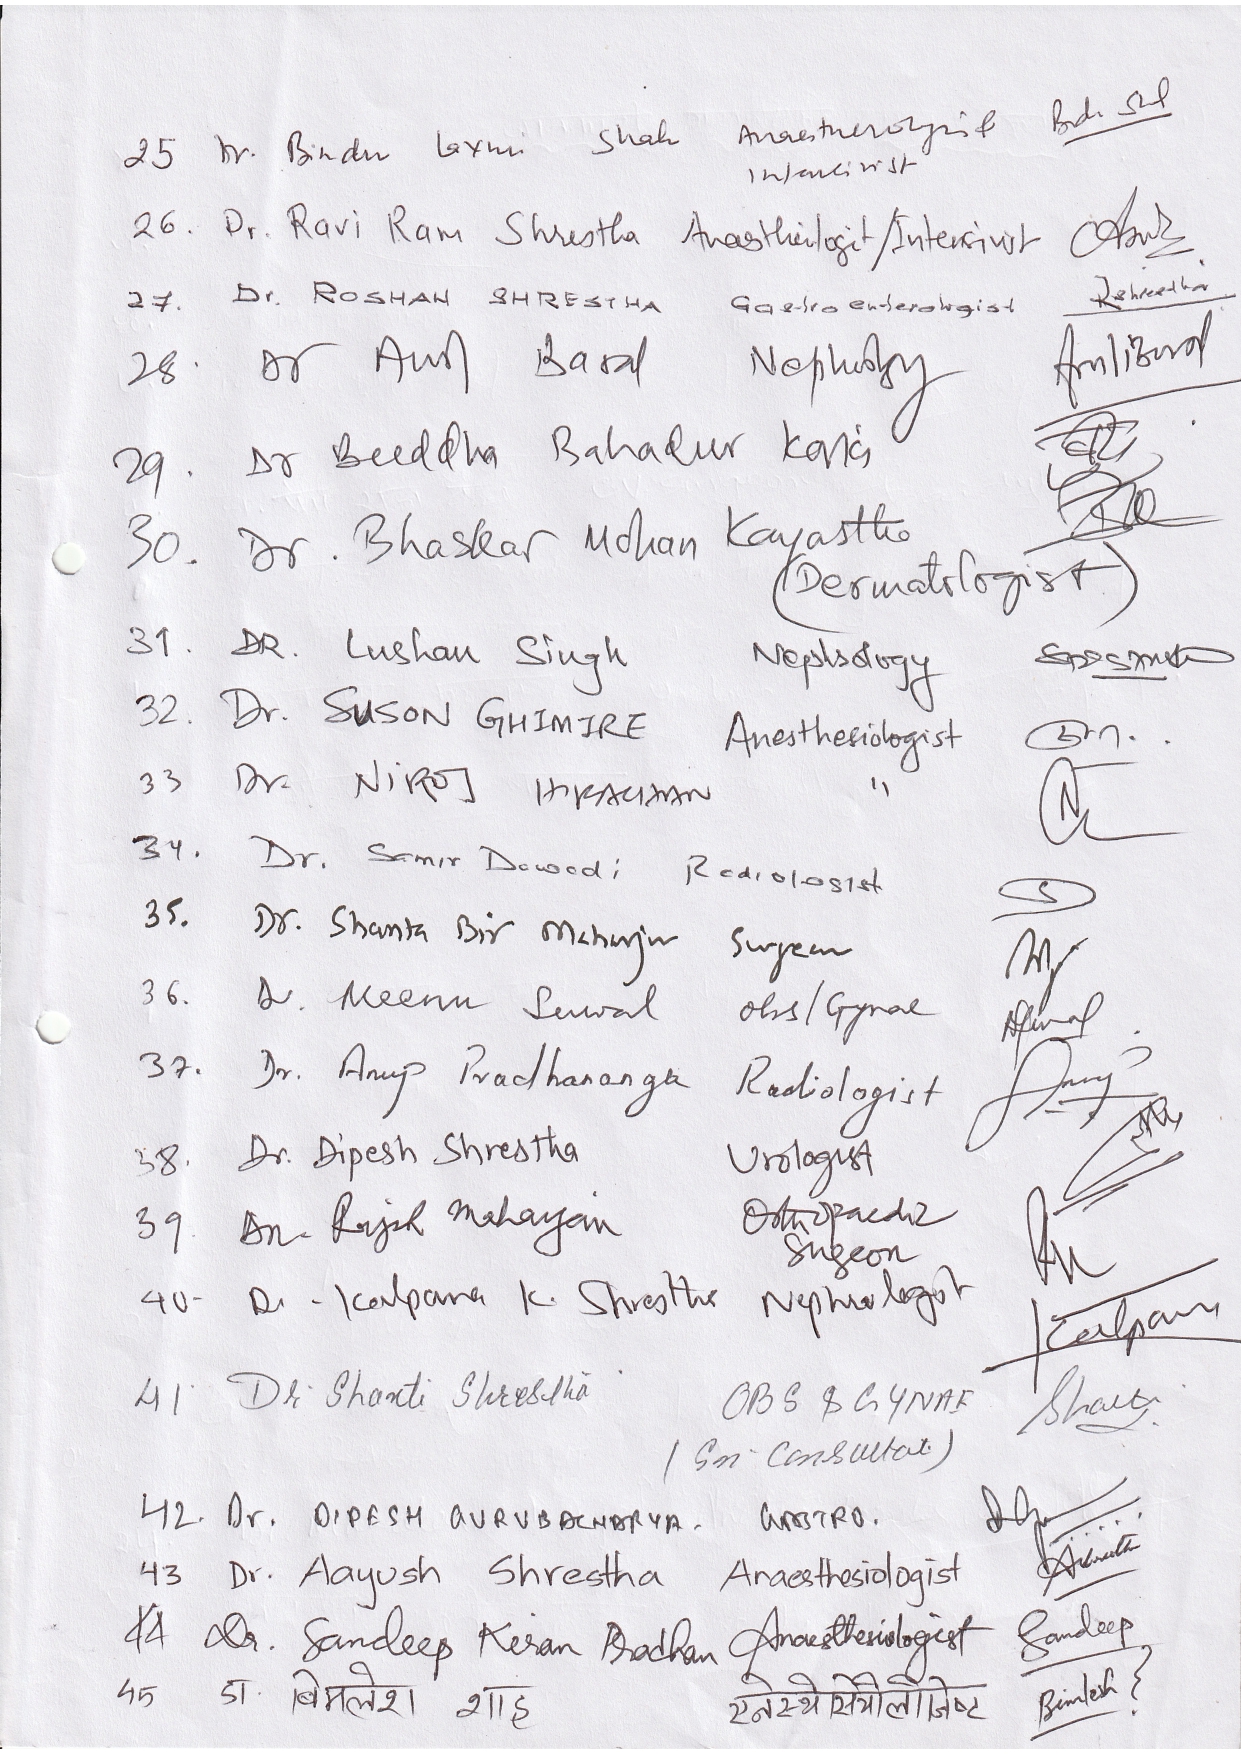 25 Dr. Bindu Laxmi Shah Anaesthesiologist
Intensivist
26. Dr. Ravi Ram Shrestha Anaesthiologit/Intensivist
27. Dr. ROSHAN SHRESTHA Gastroenterologist RShrestha
28. Dr Anil Baral Nephrology
29. Dr Beeddha Bahadur Karki
30. Dr. Bhaskar Mohan Kayastha
(Dermatologist)
31. DR. Lushan Singh Nephrology
32. Dr. SUSON GHIMIRE Anesthesiologist
33 Dr. NIROJ HIRACHAN "
34. Dr. Samir Dawadi Radiologist
35. Dr. Shanta Bir Maharjan Surgeon
36. Dr. Meenu Suwal Obs/Gynae
37. Dr. Anup Pradhananga Radiologist Anup
38. Dr. Dipesh Shrestha Urologist
39 Dr. Rajesh Maharjan Orthopaedic
Surgeon
40- Dr - Kalpana K. Shrestha Nephrologist Kalpana
41 Dr. Shanti Shrestha OBS & GYNAE Shanti
(Sn. Consultat)
42. Dr. DIPESH GURUBACHARYA. GASTRO.
43 Dr. Aayush Shrestha Anaesthesiologist
44 Dr. Sandeep Kiran Pradhan Anaesthesiologist Sandeep
45 डा. बिमलेश शाह एनेस्थेसियोलोजिष्ट Bimlesh